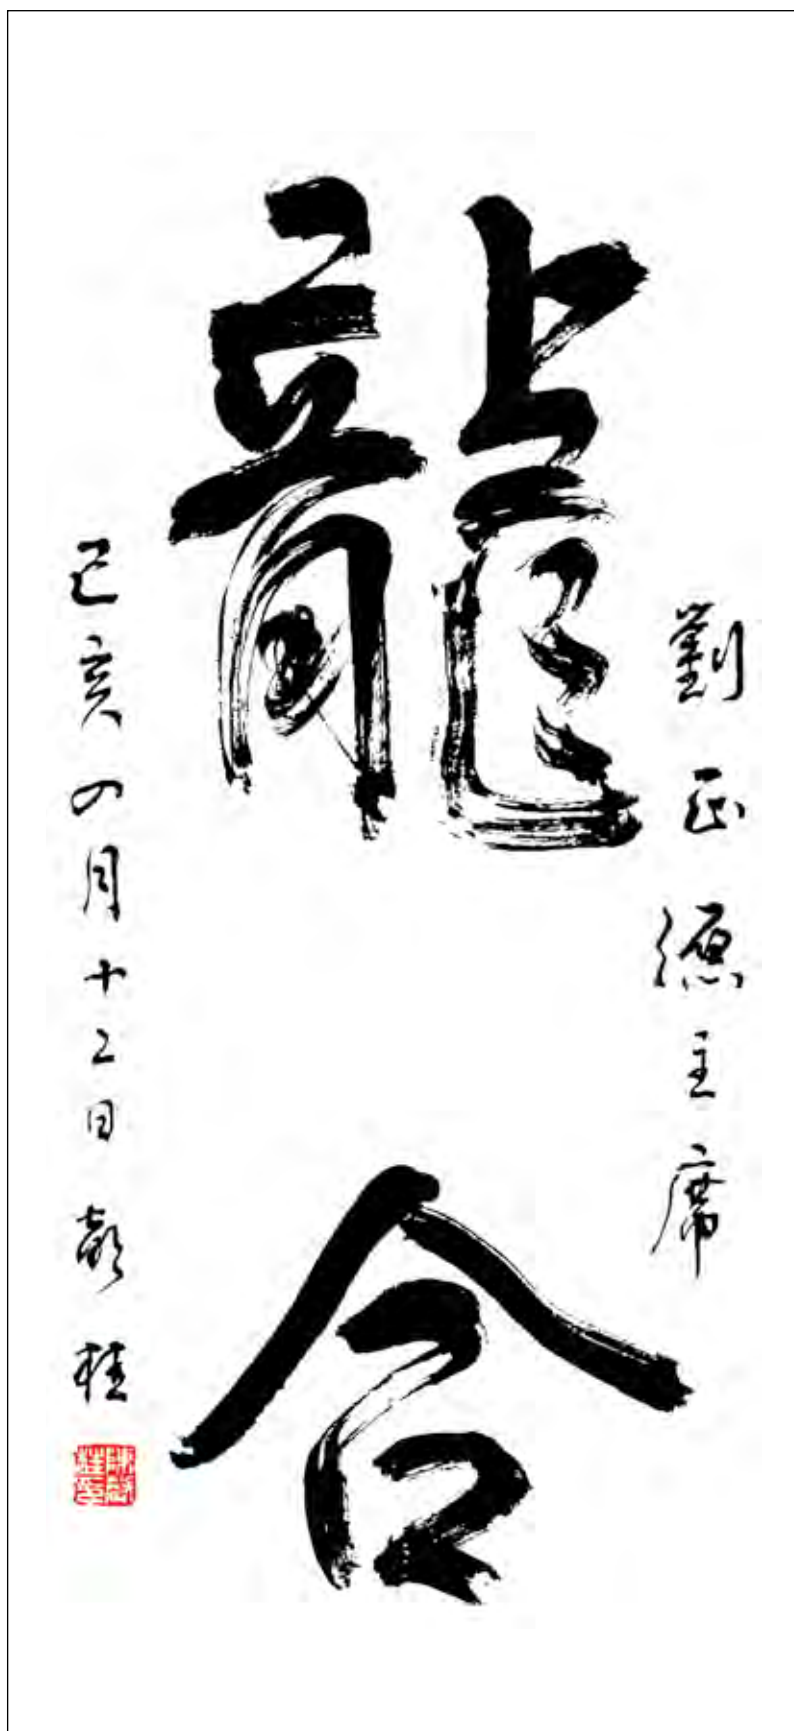 劉正德主席
龍合
己亥四月十二日彭桂